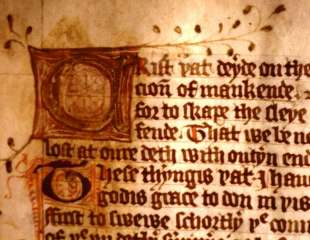 Crist yat deyde on the
cioń of mankende.
for to skape the sleye
fende. That we be no
lost at oure deth with outyn end
These thyngis yat I haw
godis grace to don in yis
ffirst to swewe schortly yᵉ com